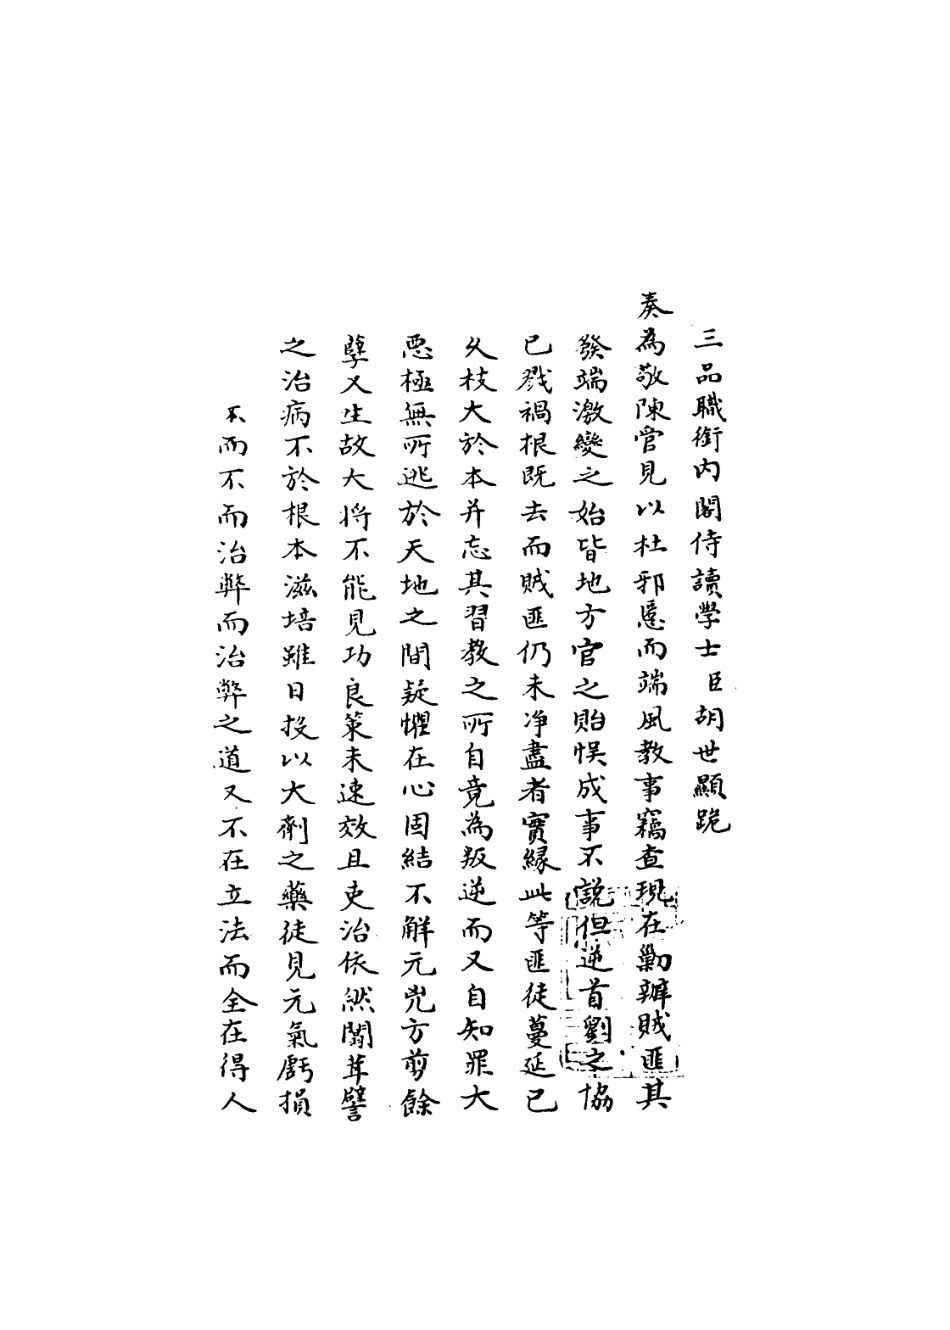 三品職銜內閣侍讀學士臣胡世顯跪
奏為敬陳管見以杜邪慝而端風教事竊查現在勦辦賊匪其
發端激變之始皆地方官之貽悞成事不說但逆首劉之協
已戮禍根既去而賊匪仍未净盡者實緣此等匪徒蔓延已
久枝大於本并忘其習教之所自竟為叛逆而又自知罪大
惡極無所逃於天地之間疑懼在心固結不解元兇方剪餘
孽又生故大將不能見功良策未速效且吏治依然闒茸譬
之治病不於根本滋培雖日投以大劑之藥徒見元氣虧損
而不而治弊而治弊之道又不在立法而全在得人